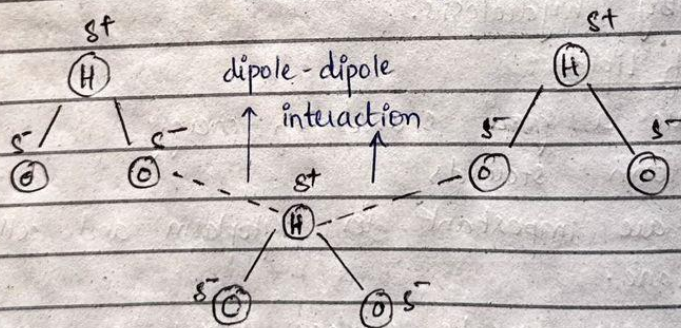 δ+ δ+
H dipole-dipole H
interaction
δ- δ- δ- δ-
O O δ+ O O
H
δ- O O δ-